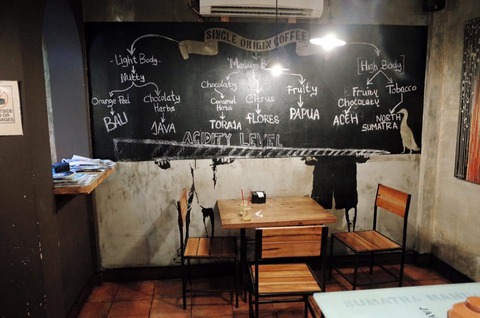 SINGLE ORIGIN COFFEE
-Light Body-
Nutty
Orange Peel
BALI
Chocolaty
Herbs
JAVA
Chocolaty
Caramel
Herbs
TORAJA
Citrus
FLORES
Fruity
PAPUA
[High Body]
Fruity
Chocolaty
ACEH
Tobacco
NORTH
SUMATRA
ACIDITY LEVEL